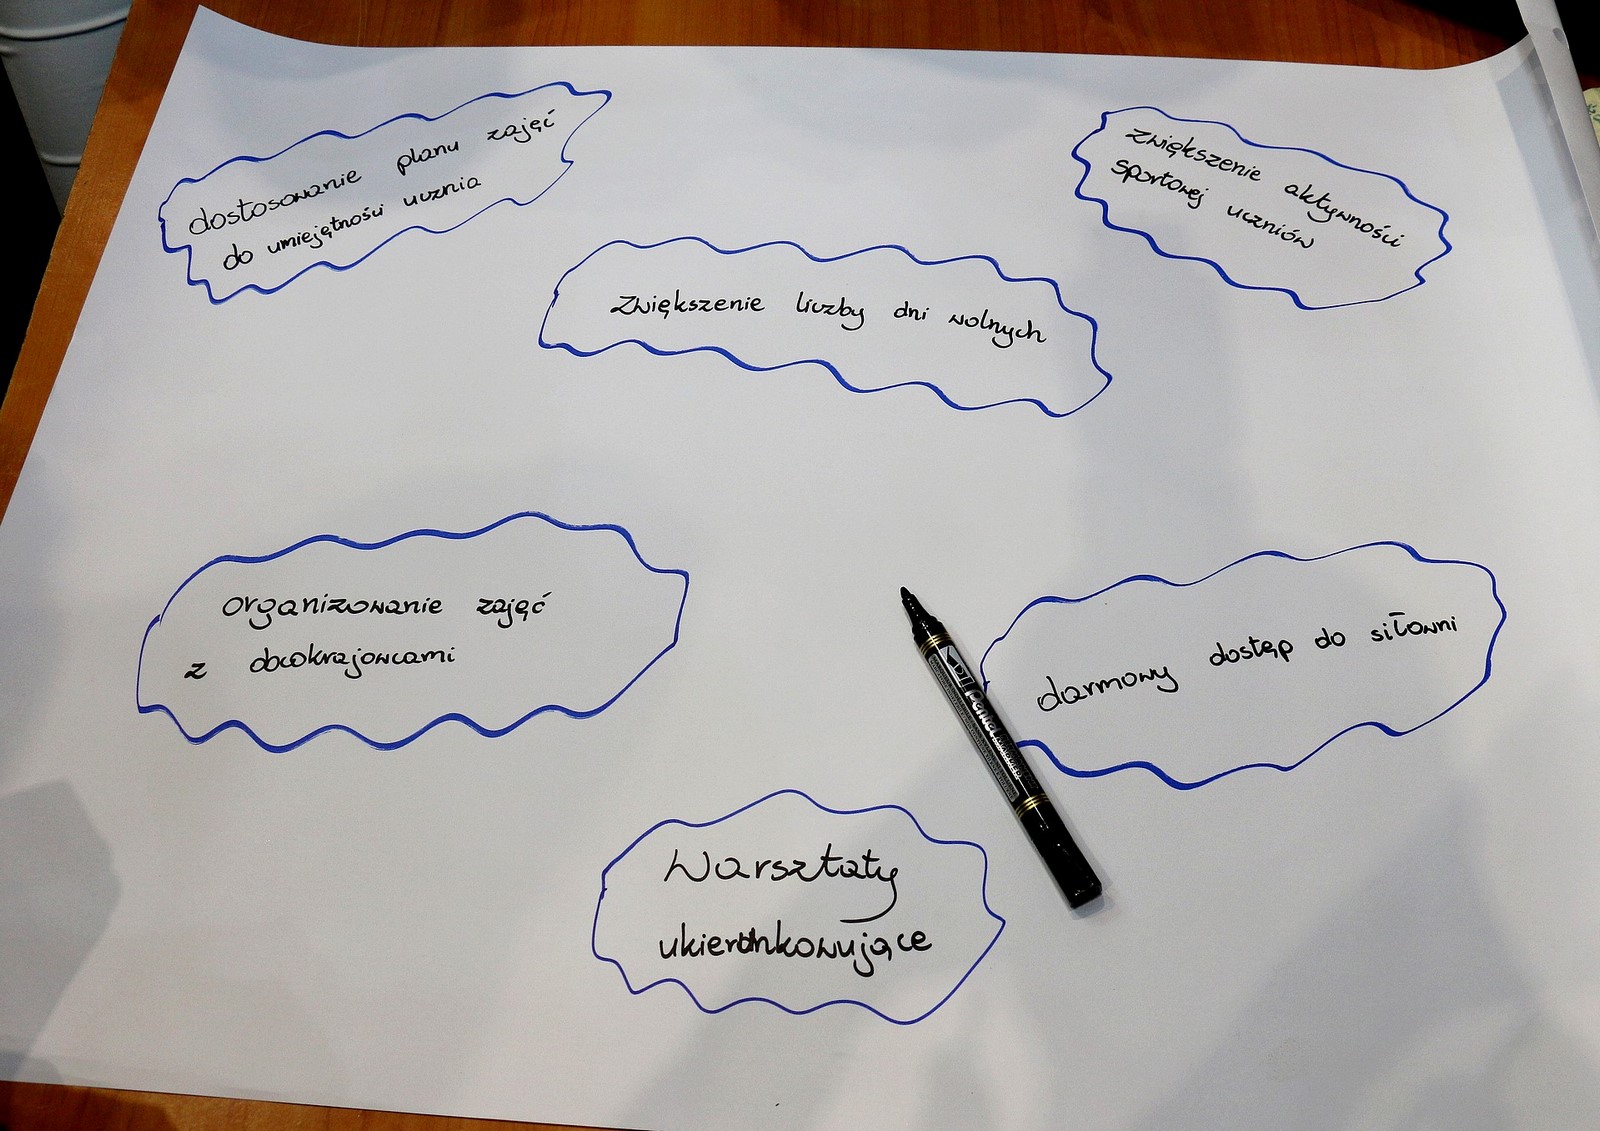 dostosowanie planu zajęć
do umiejętności ucznia
zwiększenie aktywności
sportowej uczniów
zwiększenie liczby dni wolnych
organizowanie zajęć
z obcokrajowcami
darmowy dostęp do siłowni
Pentel
Warsztaty
ukierunkowujące